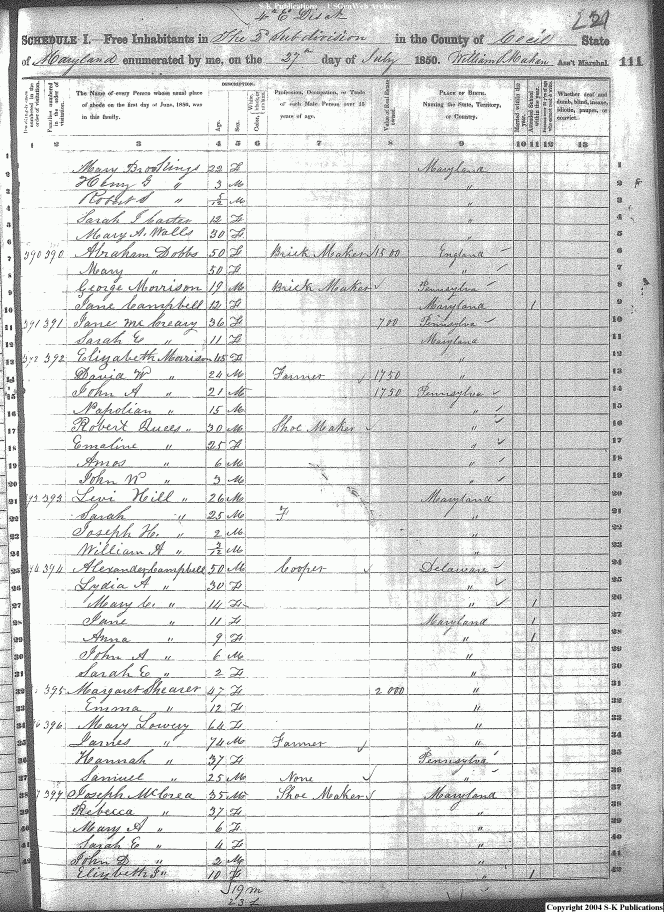 S-K Publications - USGenWeb Archives
4th E Dist
SCHEDULE I.—Free Inhabitants in The 5th Subdivision in the County of Cecil State
of Maryland enumerated by me, on the 27th day of July 1850. Ass't Marshal. 111
DESCRIPTION.
The Name of every Person whose usual place of abode on the first day of June, 1850, was in this family.
Age.
Sex.
Profession, Occupation, or Trade of each Male Person over 15 years of age.
Value of Real Estate owned.
PLACE OF BIRTH. Naming the State, Territory, or Country.
Married within the year.
Whether deaf and dumb, blind, insane, idiotic, pauper, or convict.
1 2 3 4 5 6 7 8 9 10 11 12 13
1 Mary Brookings 22 F Maryland 1
2 Henry G " 3 M " 2
3 Robert S " 5/12 M " 3
4 Sarah J Carter 12 F " 4
5 Mary A. Walls 30 F " 5
6 390 390 Abraham Dobbs 50 F Brick Maker 1500 England 6
7 Mary " 50 F " 7
8 George Morrison 19 M Brick Maker Pennsylva 8
9 Jane Campbell 12 F Maryland 1 9
10 391 391 Jane McCreary 36 F 700 Pennsylva 10
11 Sarah E " 11 F Maryland 11
12 392 392 Elizabeth Morrison 45 F " 12
13 David W " 24 M Farmer 1750 " 13
14 John A " 21 M 1750 Pennsylva 14
Napolian " 15 M "
Robert Quees " 30 M Shoe Maker "
Emaline " 25 F "
Amos " 6 M "
John W " 3 M "
393 Levi Hill " 26 M Maryland
Sarah " 25 M F "
Joseph H. " 2 M "
William A " M "
394 Alexander Campbell 50 M Cooper Delaware
Lydia A " 30 F "
Mary C. " 14 F " 1
Jane " 11 F Maryland 1
Anna " 9 F " 1
John A " 6 M "
Sarah E " 2 F "
395 Margaret Shearer 47 F 2000 "
Emma " 12 F "
396 Mary Lowery 64 F "
James " 74 M Farmer "
Hannah " 37 F Pennsylva
Samuel " 25 M None "
397 Joseph McCrea 35 M Shoe Maker Maryland
Rebecca " 37 F "
Mary A " 6 F "
Sarah E " 4 F "
John D " 2 M "
Elizabeth J " 10 F " 1
19 m
23 f
Copyright 2004 S-K Publications